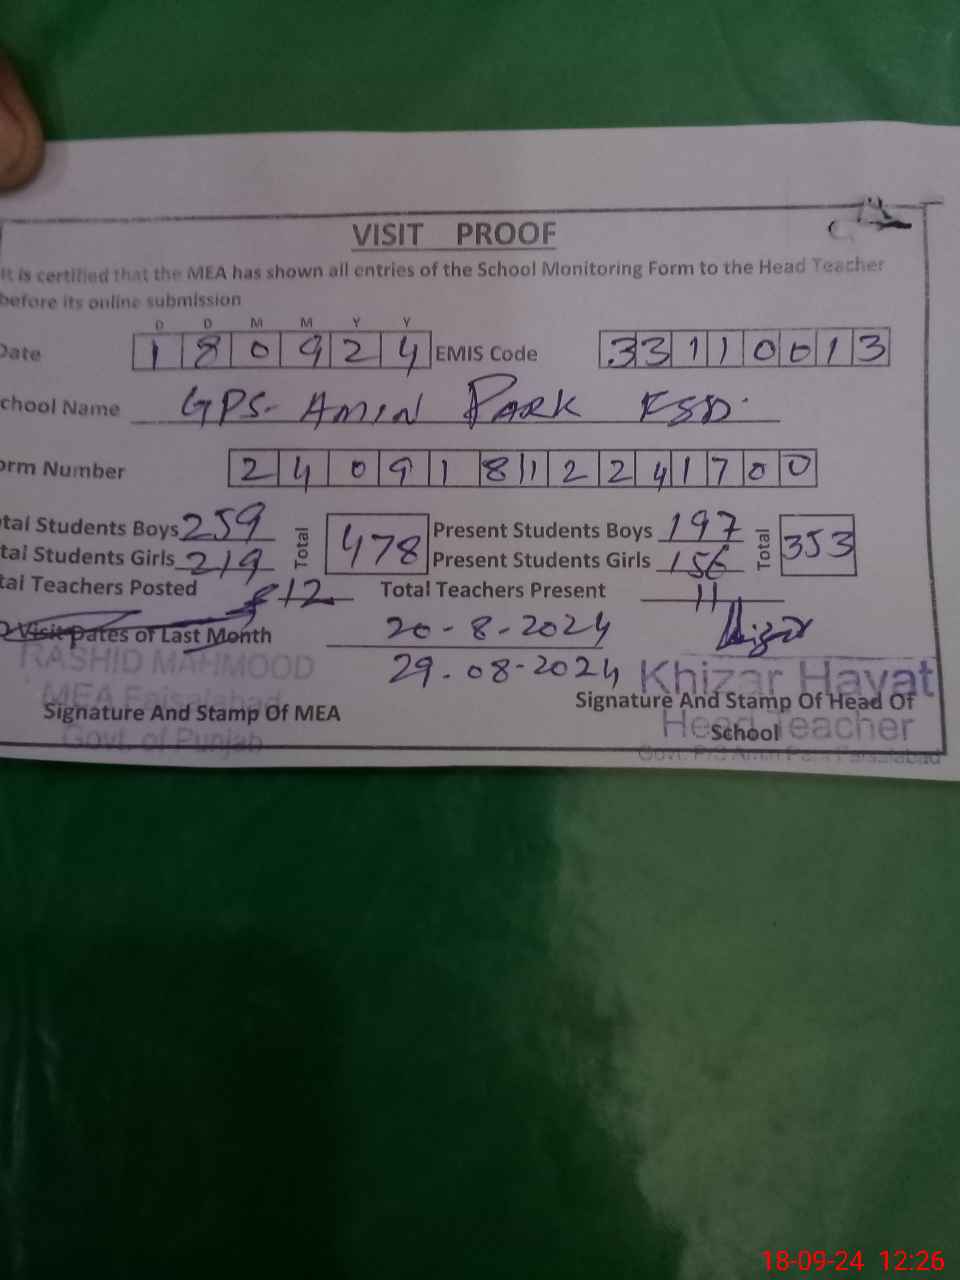 VISIT PROOF
It is certified that the MEA has shown all entries of the School Monitoring Form to the Head Teacher
before its online submission
D D M M Y Y
Date 1 8 0 9 2 4 EMIS Code 3 3 1 1 0 0 1 3
chool Name GPS. AMIN PARK FSD.
orm Number 2 4 0 9 1 8 1 2 2 4 1 7 0 0
tal Students Boys 259 Total 478 Present Students Boys 197 Total 353
tal Students Girls 219 Present Students Girls 156
tal Teachers Posted 12 Total Teachers Present 11
Visit Dates of Last Month 20-8-2024
29.08-2024
RASHID MAHMOOD
MEA Faisalabad
Govt. of Punjab
Signature And Stamp Of MEA
Khizar Hayat
Signature And Stamp Of Head Of
School
Head Teacher
Govt. P/S Amin Park Faisalabad
18-09-24 12:26